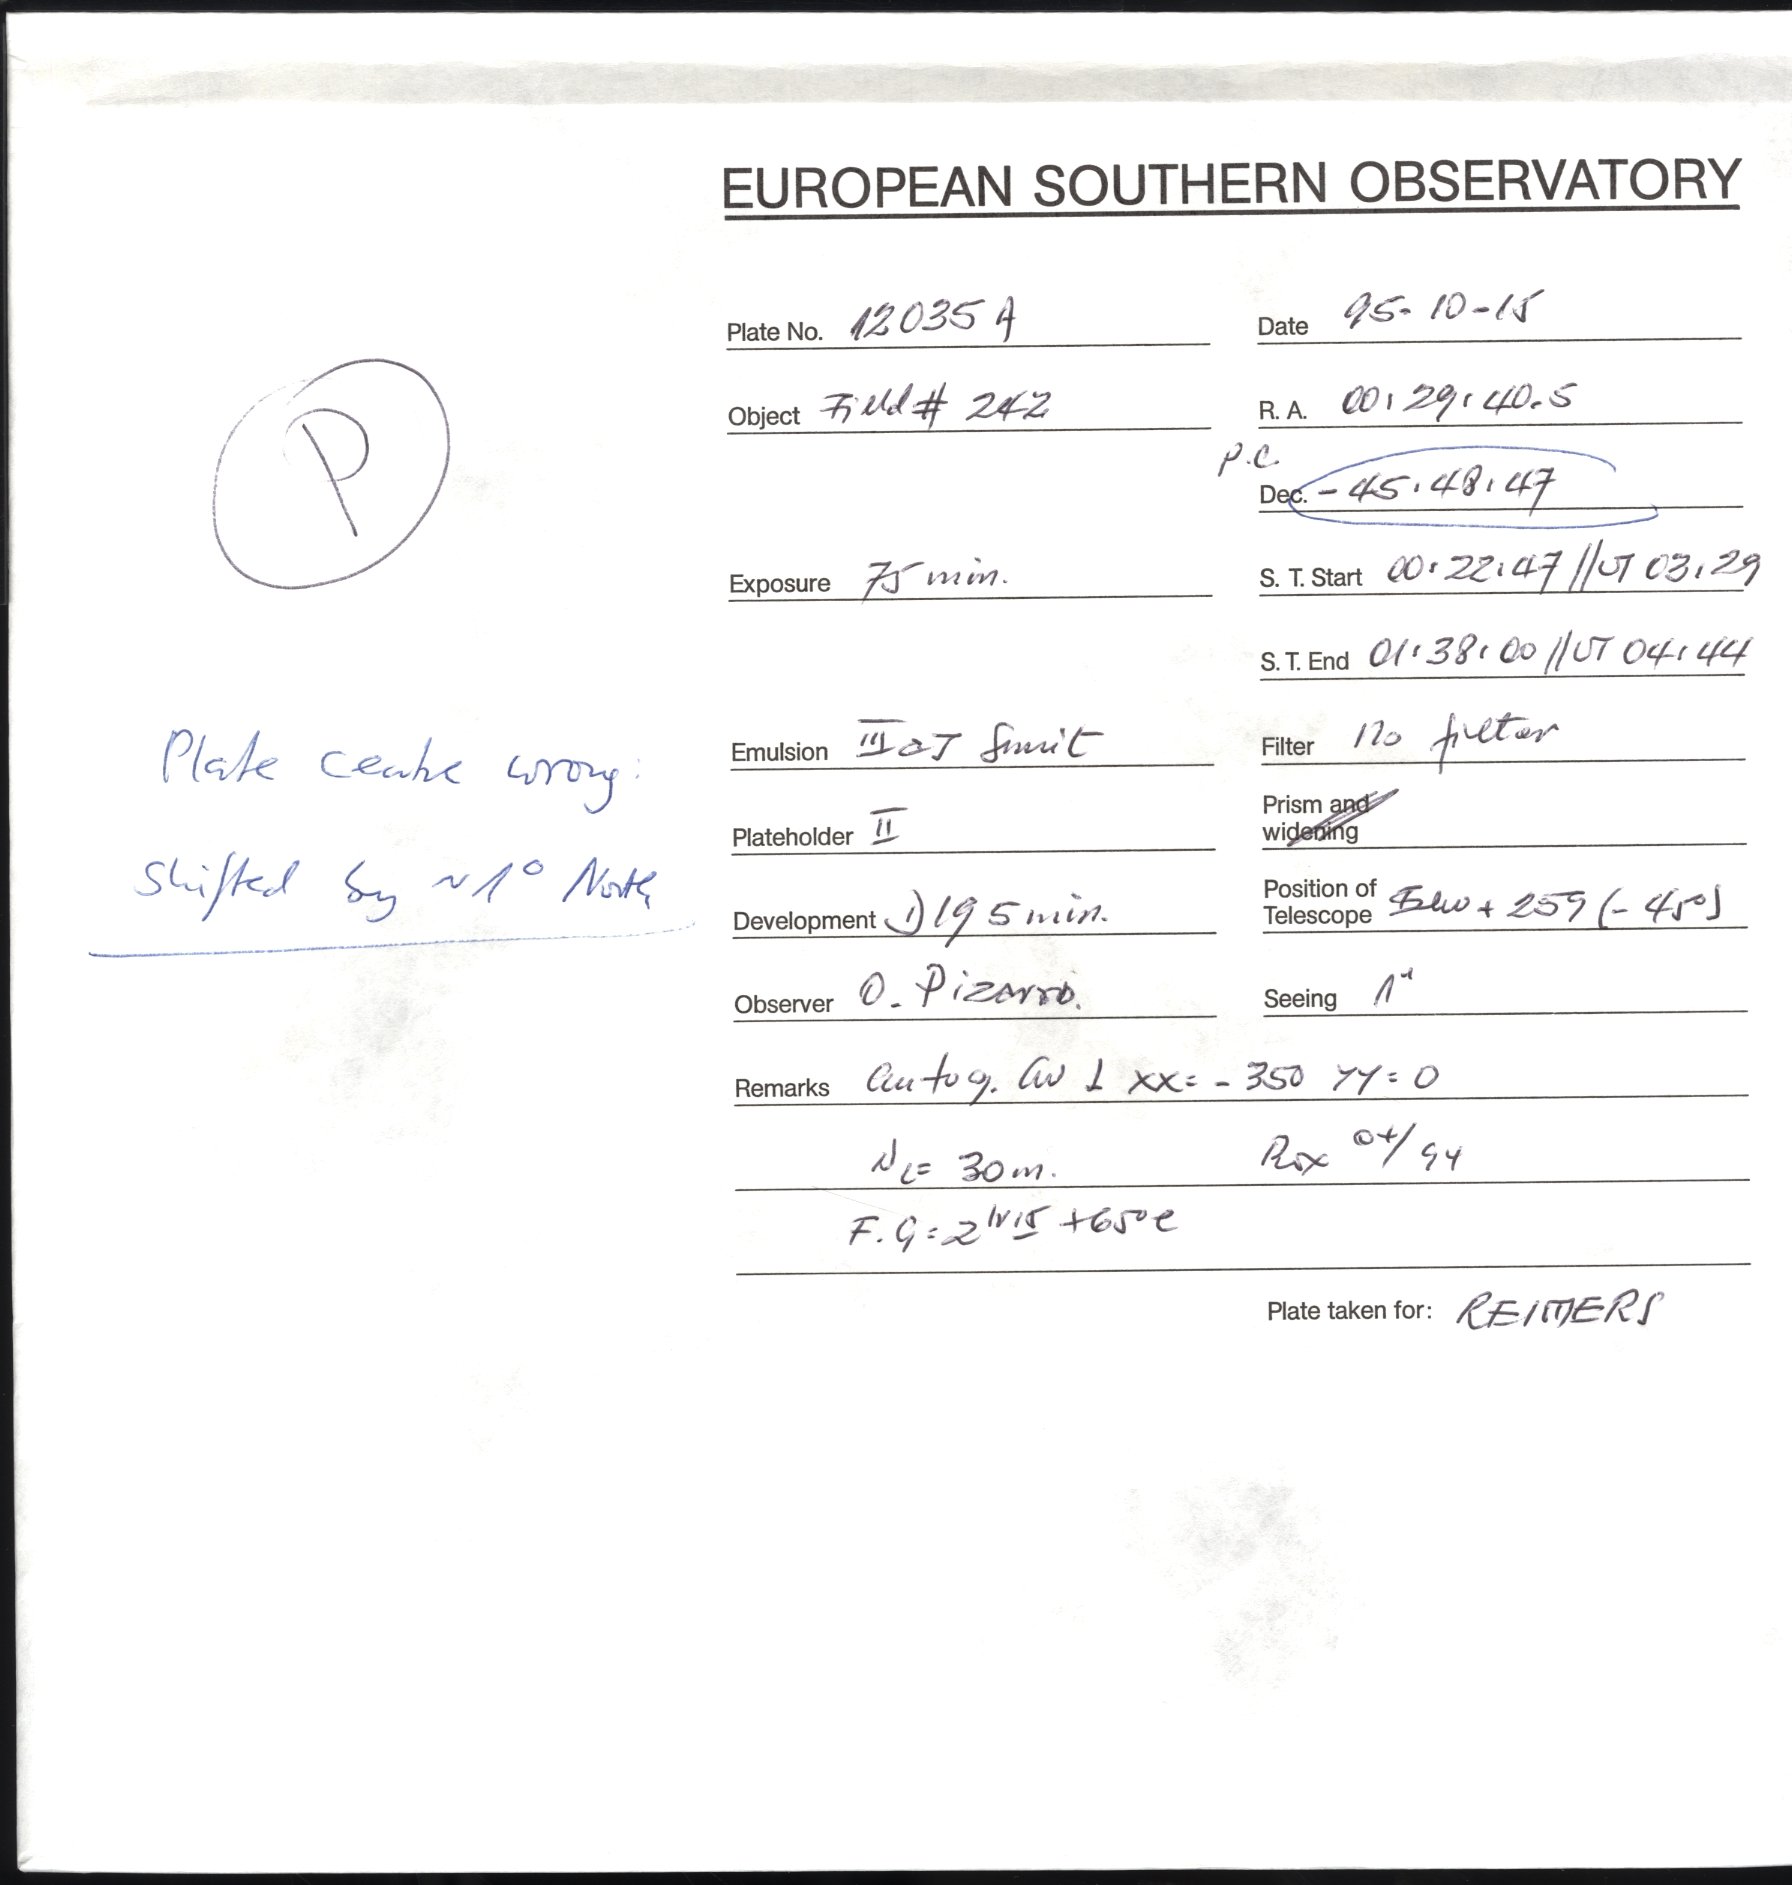 EUROPEAN SOUTHERN OBSERVATORY
Plate No. 12035 A
Date 95-10-15
P
Object Field # 242
R. A. 00:29:40.5
P.C
Dec. -45:48:47
Exposure 75 min.
S. T. Start 00:22:47 // UT 03:29
S. T. End 01:38:00 // UT 04:44
Plate centre wrong:
shifted by ~1° North
Emulsion III aJ
Filter no filter
Plateholder II
Prism and
widening
Development 1) 19 5 min.
Position of
Telescope + 259 (-45°)
Observer O. Pizarro.
Seeing 1"
Remarks autog. xx= -350 YY= 0
= 30 m.
F. G =
Plate taken for: REIMERS